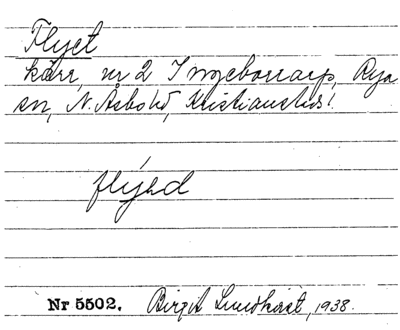 Flyet
kärr, nr 2 Ingeborrarp, Rya
sn, N. Åsbo hd, Kristianstads l.
flýəd
Nr 5502. Birgit Lundkvist, 1938.